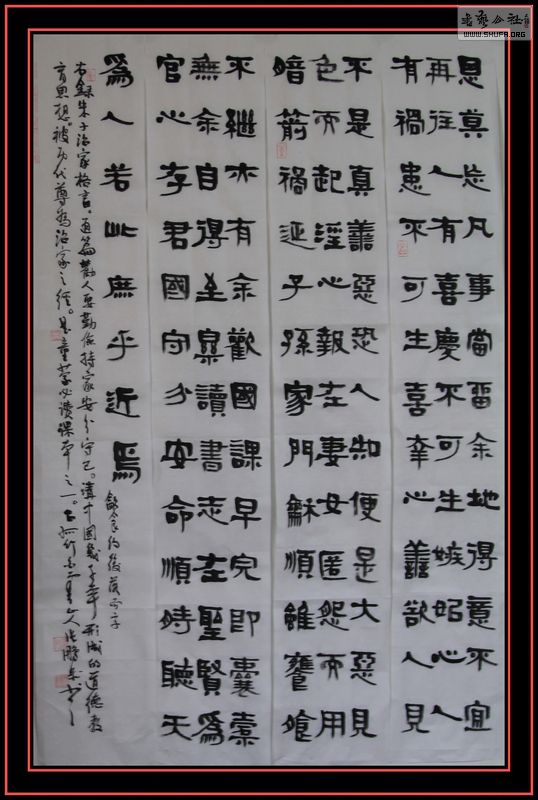 恩莫忘凡事當留余地得意不宜
再往人有喜慶不可生嫉妒心人
有禍患不可生喜幸心善欲人見
不是真善惡恐人知便是大惡見
色而起淫心報在妻女匿怨而用
暗箭禍延子孫家門龢順雖饔飧
不繼亦有余歡國課早完即囊橐
無余自得至樂讀書志在聖賢爲
官心存君國守分安命順時聽天
爲人若此庶乎近焉
右録朱子治家格言。通篇勸人要勤儉持家安分守己。講中國幾千年形成的道德教
育思想。被歷代尊爲治家之經。是童蒙必讀課本之一。
WWW.SHUFA.ORG